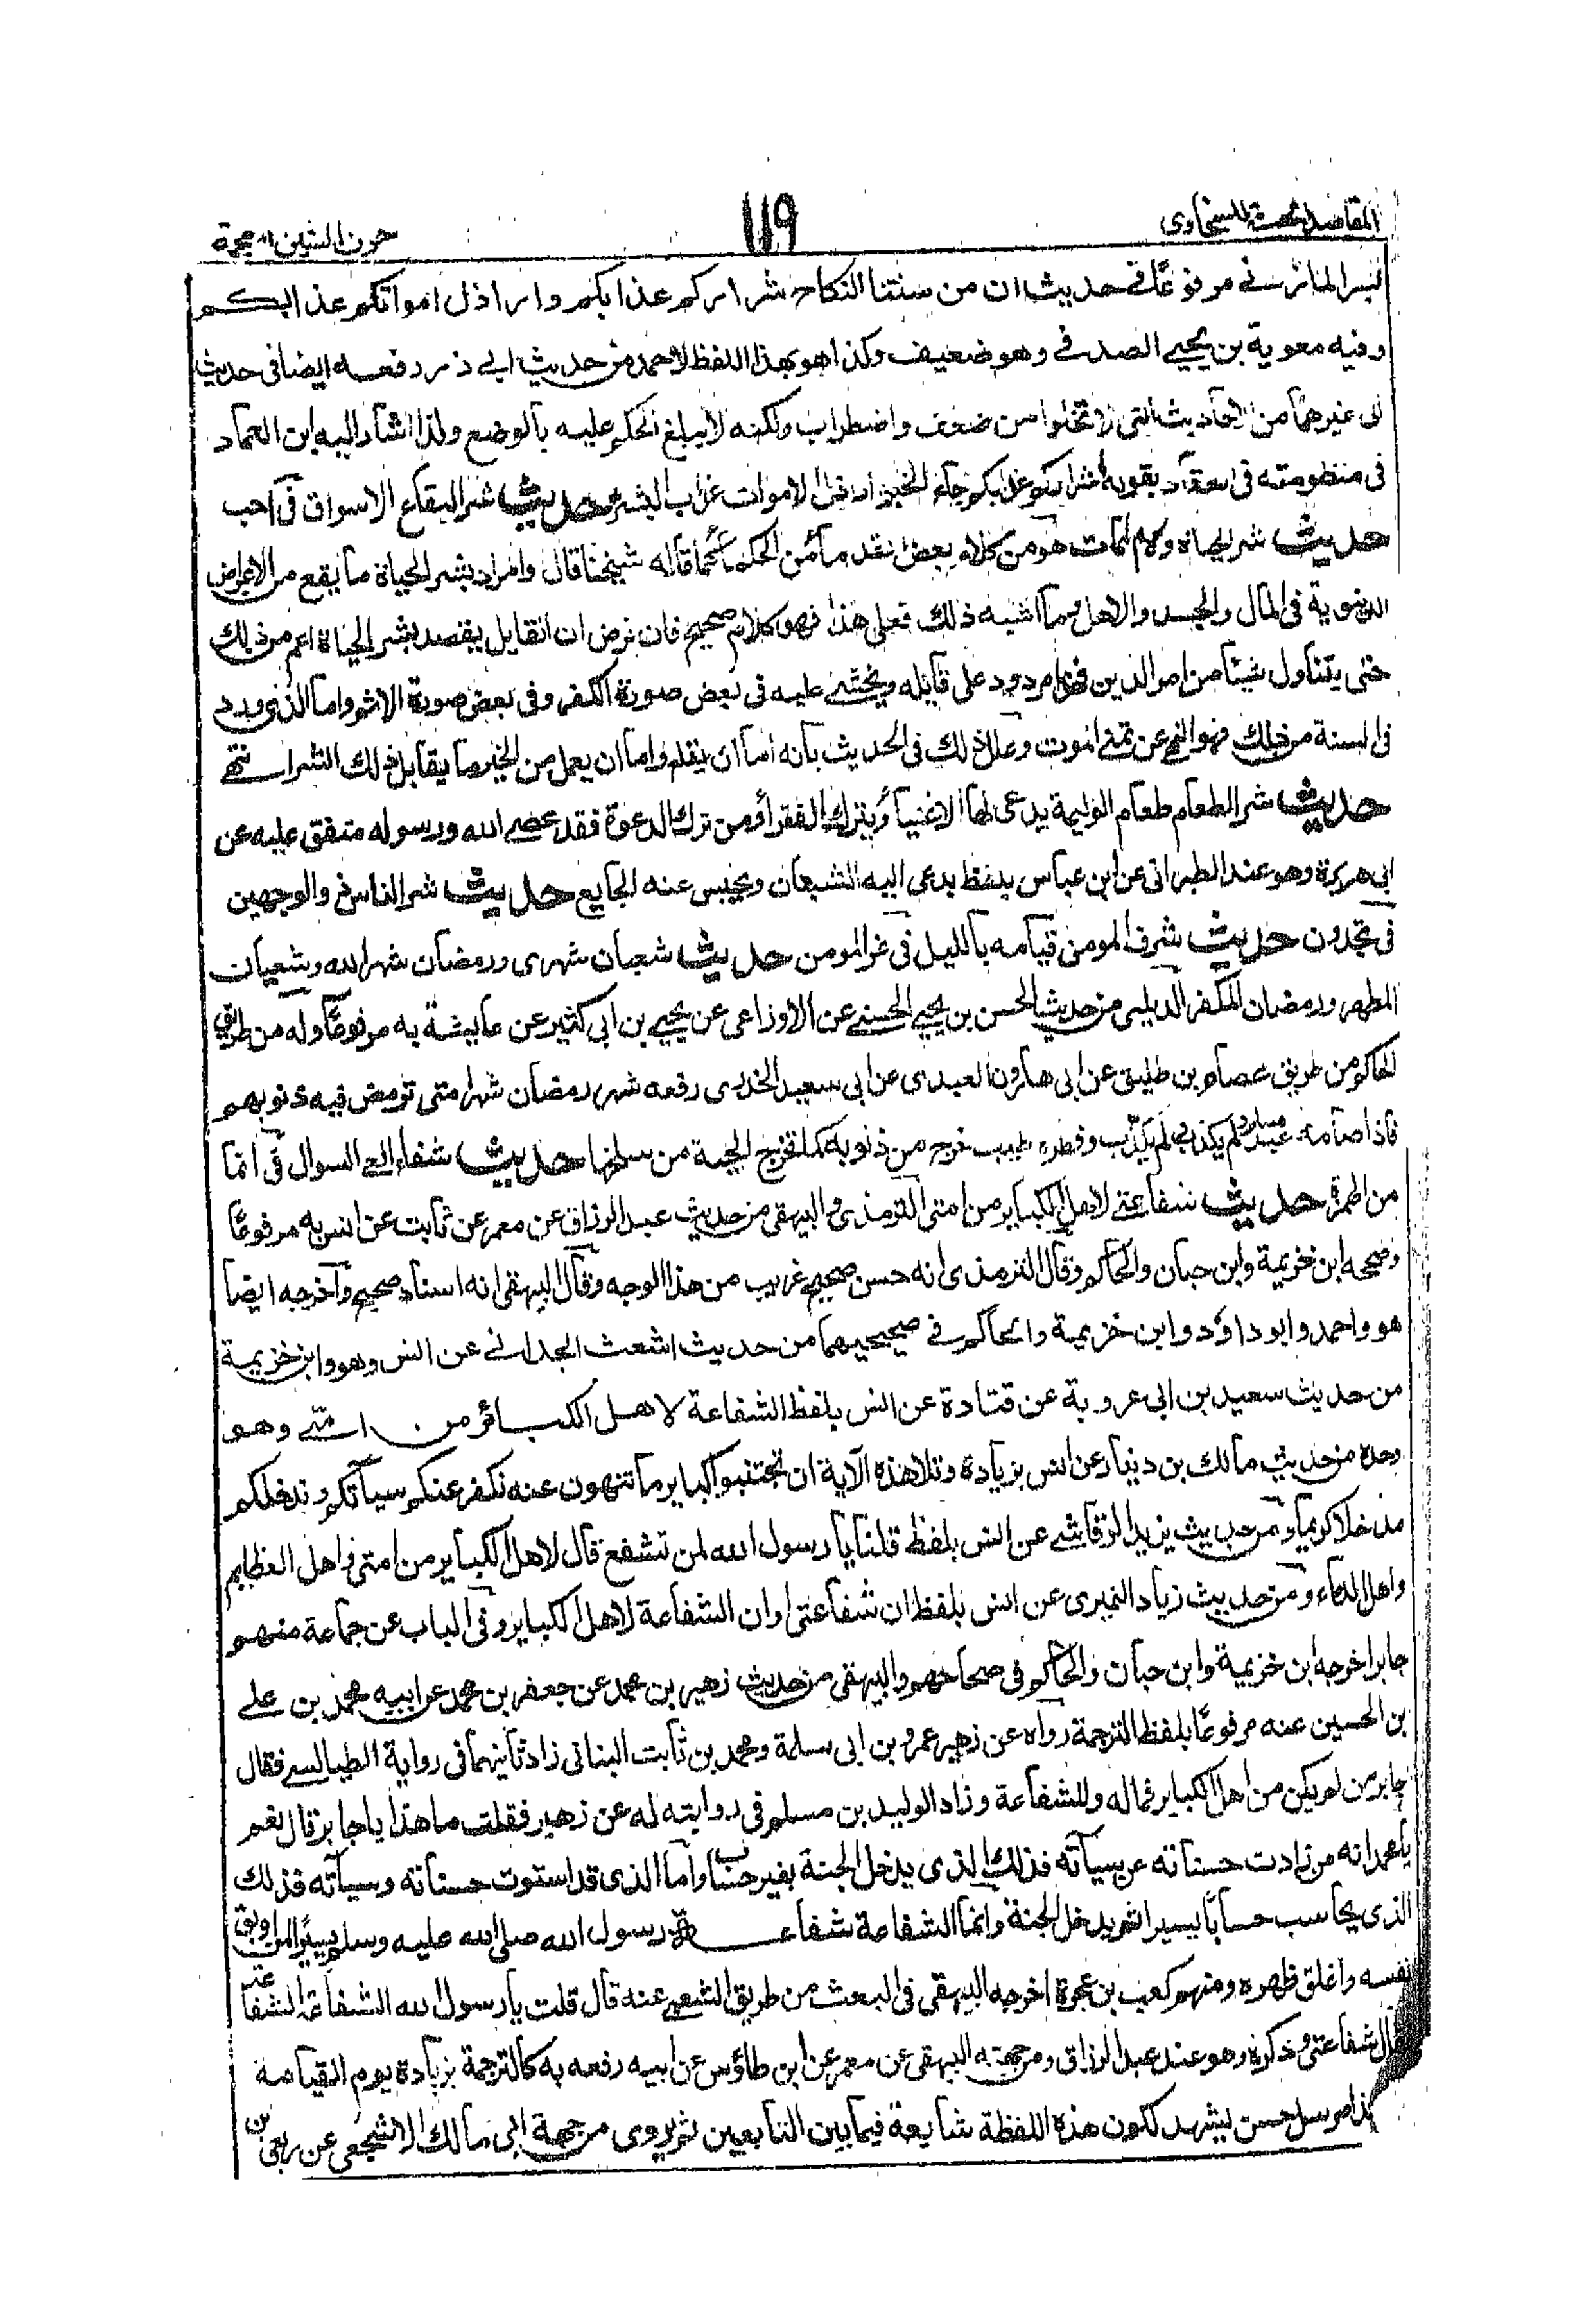 المقاصد الحسنة للسخاوى
١١٩
حرف الشين المعجمة
بسر المازنى مرفوعًا فى حديث ان من سنتنا النكاح شراركم عذابكم واراذل امواتكم عذابكم
وفيه معوية بن يحيى الصدفى وهو ضعيف وكذا هو بهذا اللفظ لاحمد من حديث ابى ذر رفعه ايضا فى حديث
الى غيرهما من الاحاديث التى لا تخلوا من ضعف واضطراب ولكنه لا يبلغ الحكم عليه بالوضع ولذا اشار اليه ابن العماد
فى منظومته فى بقوله شراركم عزابكم جاء الخبر اراذل الاموات عزاب البشر حديث شر البقاع الاسواق فى احب
حديث شر الحياة ولا الممات هو من كلام بعض من الحكماء كما قاله شيخنا قال والمراد بشر الحياة ما يقع من الاعراض
الدنيوية فى المال والجسد والاهل وما اشبه ذلك فعلى هذا فهو كلام صحيح فان فرض ان القايل يقصد بشر الحياة اعم من ذلك
حتى يتناول شيئا من امر الدين فهذا مردود على قايله ويخشى عليه فى بعض صورة الكفر وفى بعض صورة الاثم واما الذى ورد
فى السنة من ذلك فهو النهى عن تمنى الموت وعلل ذلك فى الحديث بانه اما ان يقلع واما ان يعمل من الخير ما يقابل ذلك الشر انتهى
حديث شر الطعام طعام الوليمة يدعى لها الاغنياء ويترك الفقراء ومن ترك الدعوة فقد عصى الله ورسوله متفق عليه عن
ابى هريرة وهو عند الطبرانى عن ابن عباس بلفظ يدعى اليه الشبعان ويحبس عنه الجايع حديث شر الناس ذو الوجهين
فى تجدون حديث شرف المومن قيامه بالليل فى عز المومن حديث شعبان شهرى ورمضان شهر الله وشعبان
المطهر ورمضان المكفر الديلمى من حديث الحسن بن يحيى الحسنى عن الاوزاعى عن يحيى بن ابى كثير عن عايشة به مرفوعًا وله من طريق
الحاكم من طريق عصام بن طليق عن ابى هارون العبدى عن ابى سعيد الخدرى رفعه شهر رمضان شهر امتى ترمض فيه ذنوبهم
فاذا صامه عبد مسلم ولم يكذب ولم يغتب وفطره طيب خرج من ذنوبه كما تخرج الحية من سلخها حديث شفاء العى السوال فى انما
من الهمزة حديث شفاعتى لاهل الكبائر من امتى الترمذى والبيهقى من حديث عبد الرزاق عن معمر عن ثابت عن انس به مرفوعًا
وصححه ابن خزيمة وابن حبان والحاكم وقال الترمذى انه حسن صحيح غريب من هذا الوجه وقال البيهقى انه اسناد صحيح واخرجه ايضا
هو واحمد وابو داؤد وابن خزيمة والحاكم فى صحيحيهما من حديث اشعث الحدانى عن انس وهو وابن خزيمة
من حديث سعيد بن ابى عروبة عن قتادة عن انس بلفظ الشفاعة لاهل الكبائر من امتى وهو
وحده من حديث مالك بن دينار عن انس بزيادة وتلا هذه الآية ان تجتنبوا كبائر ما تنهون عنه نكفر عنكم سيآتكم وندخلكم
مدخلا كريما ومن حديث يزيد الرقاشى عن انس بلفظ قلنا يا رسول الله لمن تشفع قال لاهل الكبائر من امتى واهل العظايم
واهل الدماء ومن حديث زياد النميرى عن انس بلفظ ان شفاعتى او ان الشفاعة لاهل الكبائر وفى الباب عن جماعة منهم
جابر اخرجه ابن خزيمة وابن حبان والحاكم فى صحاحهم والبيهقى من حديث زهير بن محمد عن جعفر بن محمد عن ابيه محمد بن على
بن الحسين عنه مرفوعًا بلفظ الترجمة رواه عن زهير عمرو بن ابى سلمة ومحمد بن ثابت البنانى زاد ثانيهما فى رواية الطيالسى فقال
جابر من لم يكن من اهل الكبائر فماله وللشفاعة وزاد الوليد بن مسلم فى روايته له عن زهير فقلت ما هذا يا جابر قال نعم
يا محمد انه من زادت حسناته على سيآته فذلك الذى يدخل الجنة بغير حساب واما الذى قد استوت حسناته وسيآته فذلك
الذى يحاسب حسابًا يسيرا ثم يدخل الجنة وانما الشفاعة شفاعة رسول الله صلى الله عليه وسلم لمن اوبق
نفسه واغلق ظهره ومنهم كعب بن عجرة اخرجه البيهقى فى البعث من طريق الشعبى عنه قال قلت يا رسول الله الشفاعة الشفاعة
قال شفاعتى وذكره وهو عند عبد الرزاق ومن جهته البيهقى عن معمر عن ابن طاؤس عن ابيه رفعه به كالترجمة بزيادة يوم القيامة
هذا مرسل حسن يشهد لكون هذه اللفظة شايعة فيما بين التابعين ثم روى من جهة ابى مالك الاشجعى عن ربعى بن